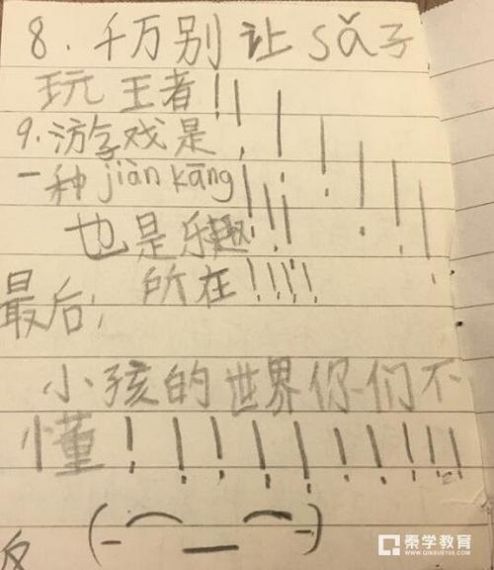 8.千万别让sǎ子
玩王者!!!!!!!!
9.游学戏是
一种jiàn kāng!!!
也是乐趣
所在!!!!
最后,
小孩的世界你们不
懂!!!!!!!!!!!
(-⌒_⌒-)
反
秦学教育
WWW.QINXUE100.COM